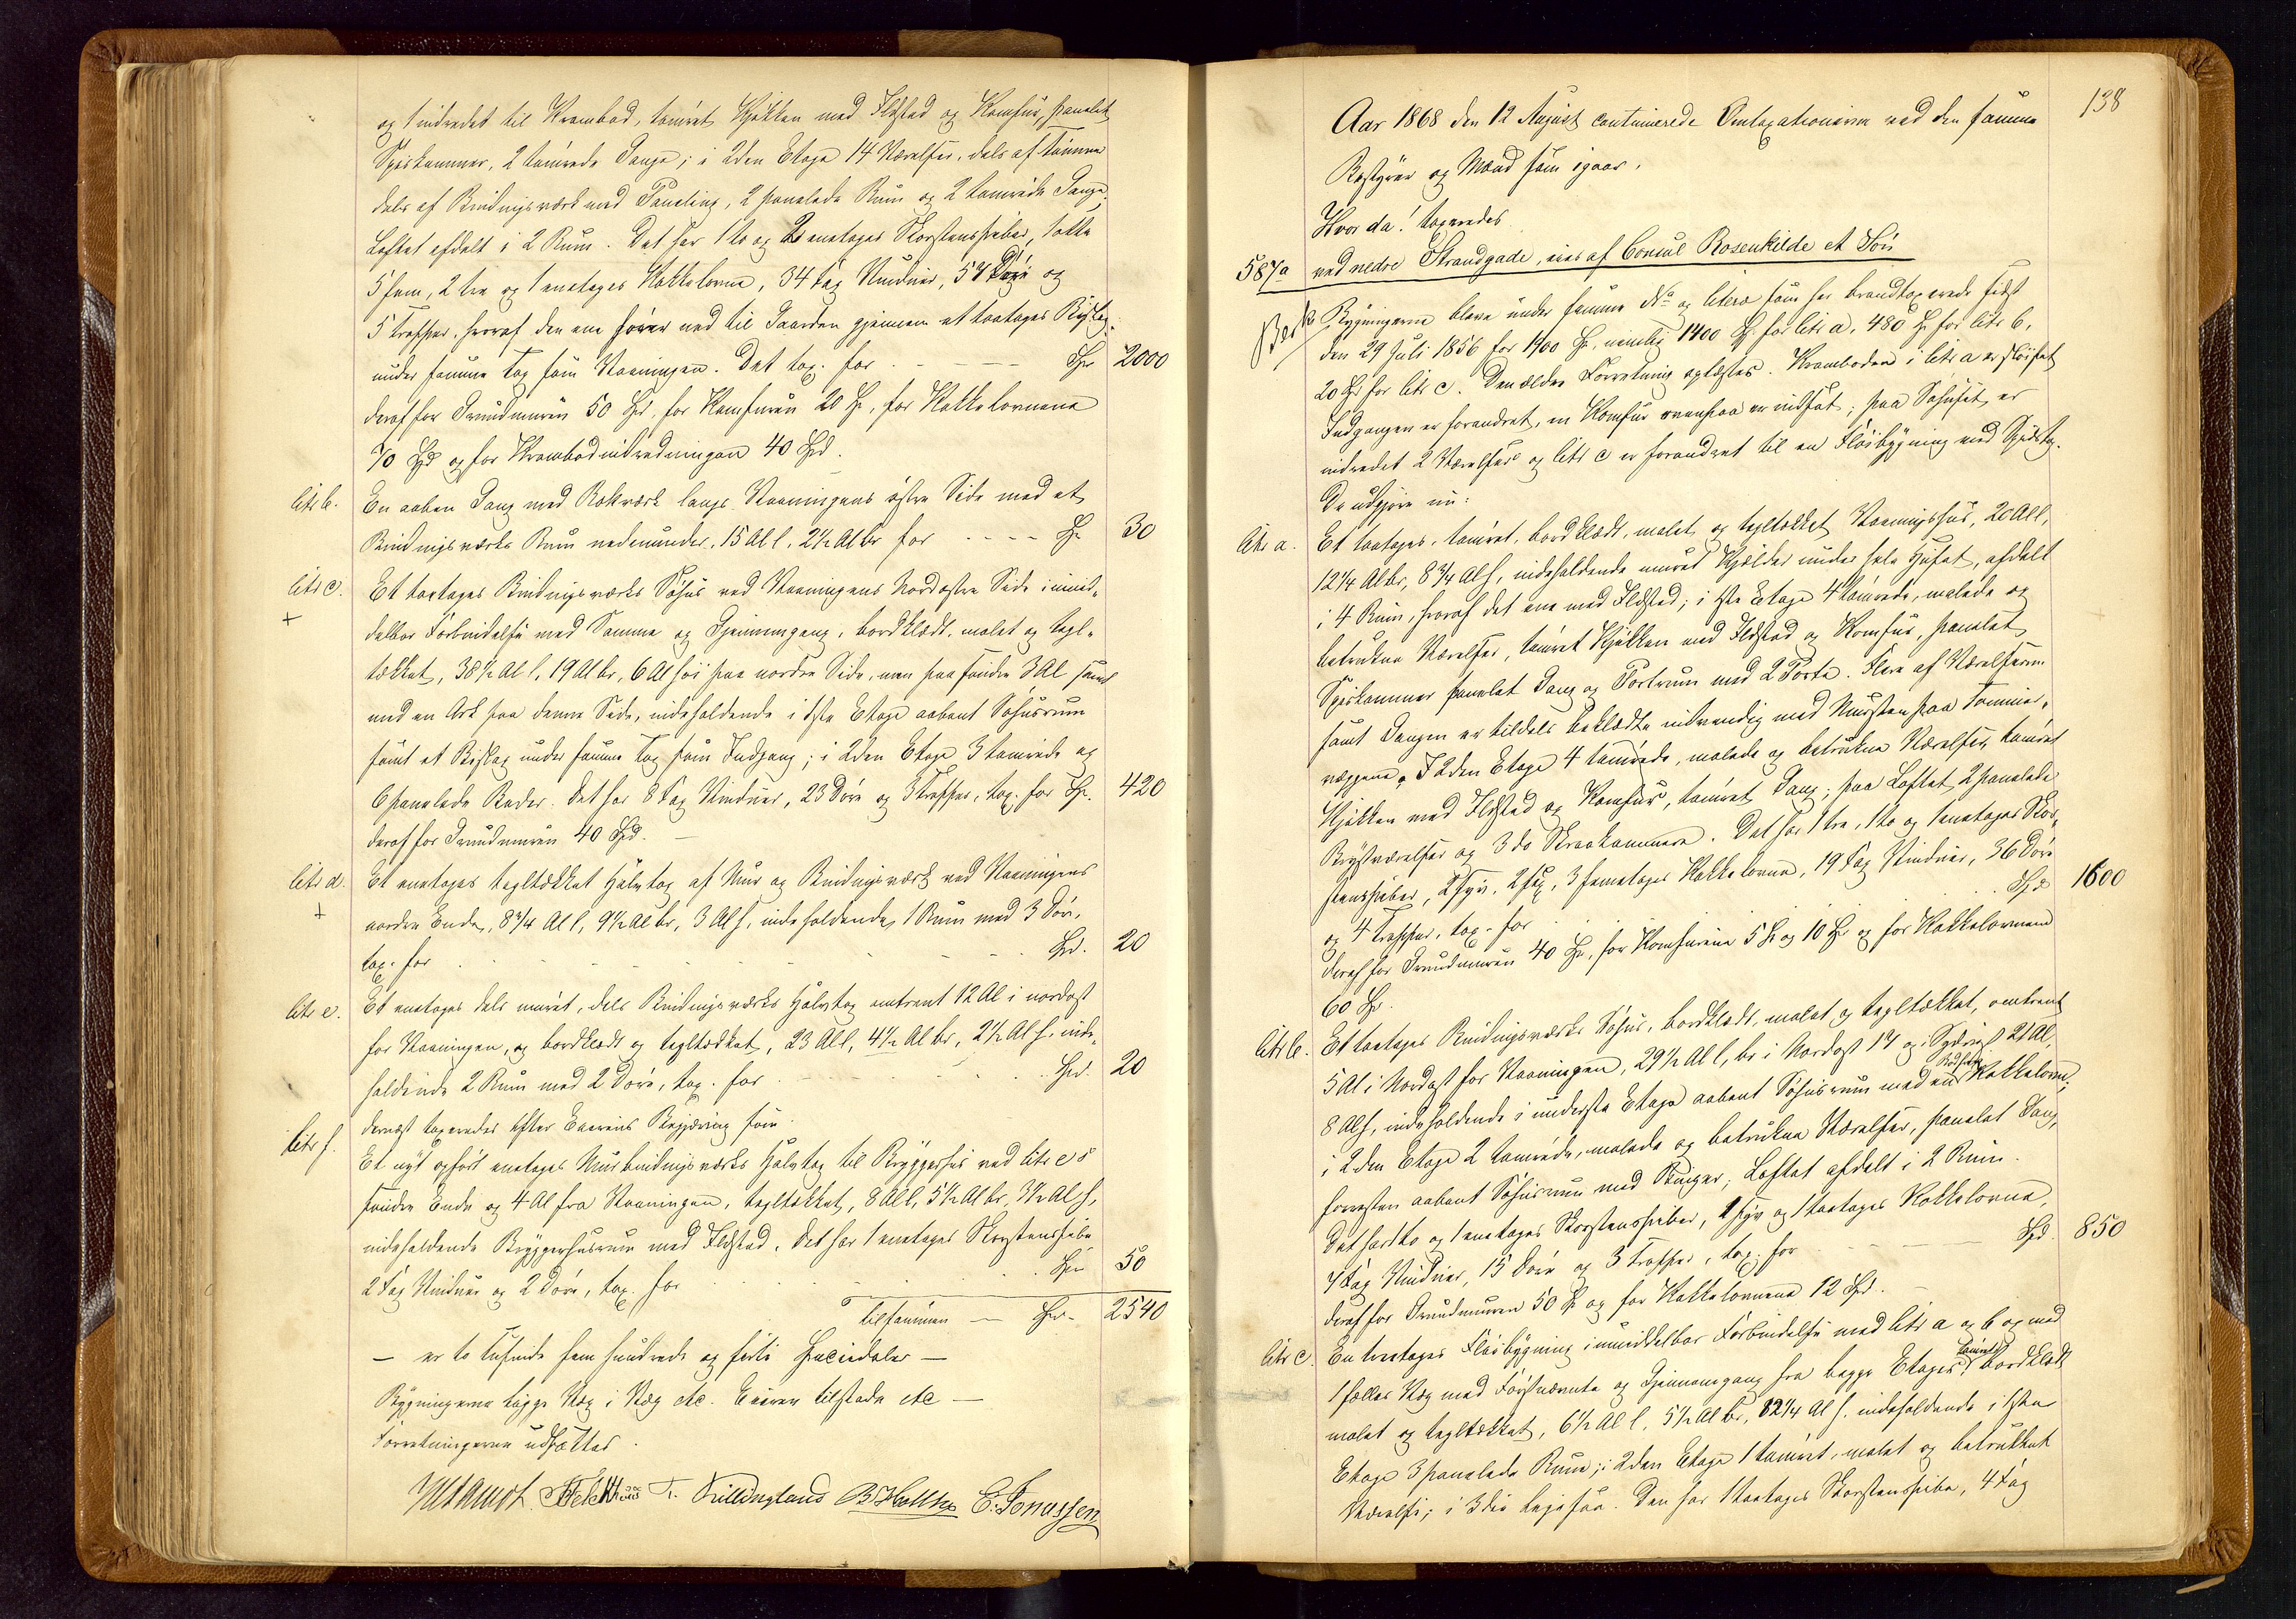 og 1 indredet til Krambod, tømret Kjøkken med Ildsted og Komfur, panelet
Spiskammer, 2 tømrede Gange; i 2den Etage 14 Værelser, dels af Tømmer
dels af Bindingsværk med Paneling, 2 panelede Rum og 2 tømrede Gange;
Loftet afdelt i 2 Rum. Det har 1 to og 2 enetages Skorstenspiber, 1 otte
5 fem, 2 tre og 1 enetages Kakkelovne, 34 Fag Vinduer, 57 Døre og
5 Trapper, hvoraf den ene fører ned til Gaarden gjennem et toetages Bislag
under samme Tag som Vaaningen. Det tax. for - - - Spd 2000
deraf for Grundmuren 50 Spd, for Komfuren 20 Sp, for Kakkelovnene
70 Spd og for Krambodindredningen 40 Spd.
Litr b. En aaben Gang med Rækværk langs Vaaningens østre Side med et
Bindingsværks Rum nedenunder, 15 Al l. 2½ Al br for - - - - Sp 30
Litr c. Et toetages Bindingsværks Søhus ved Vaaningens Nordøstre Side i umid-
+ delbar Forbindelse med Samme og Gjennemgang, bordklædt, malet og tegl-
tækket, 38½ Al l, 19 Al br, 6 Al høi paa nordre Side, men paa søndre 3 Al samt
med en Ark paa denne Side, indeholdende i 1ste Etage aabent Søhusrum
samt et Bislag under samme Tag som Indgang; i 2den Etage 3 tømrede og
6 panelede Boder. Det har 8 Fag Vinduer, 23 Døre og 3 Trapper, tax. for Sp. 420
deraf for Grundmuren 40 Spd. —
Litr d. Et enetages tegltækket Halvtag af Mur og Bindingsværk ved Vaaningens
+ nordre Ende, 8¾ Al l, 9½ Al br, 3 Al h, indeholdende 1 Rum med 3 Døre,
tax. for - - - Spd. 20
Litr e. Et enetages dels muret, dels Bindingsværks Halvtag omtrent 12 Al i nordost
for Vaaningen, og bordklædt og tegltækket, 23 Al l, 4½ Al br, 2½ Al h, inde-
holdende 2 Rum med 2 Døre, tax. for - - - Spd. 20
dernæst taxeredes efter Eierens Begjæring som
Litr f. Et nyt opført enetages Murbindingsværks Halvtag til Bryggerhus ved Litr e s
søndre Ende og 4 Al fra Vaaningen, tegltækket, 8 Al l, 5½ Al br, 3½ Al h,
indeholdende Bryggerhusrum med Ildsted. Det har 1 enetages Skorstenspibe
2 Fag Vinduer og 2 Døre, tax. for - - - Spd 50
tilsammen — Spd. 2540
— er to tusinde fem hundrede og førti Speciedaler —
Bygningerne ligge Væg i Væg etc. Eieren tilstede etc —
Forretningerne udsattes.
T. Kullingland B. Holth E. Jonassen
138
Aar 1868 den 12 August continuerede Omtaxationerne ved den samme
Bestyrer og Mænd som igaar.
Hvor da! taxeredes
587a ved nedre Strandgade, eies af Consul Rosenkilde et Søn
Besk Bygningerne bleve under samme No og Litera som her brandtaxerede sidst
den 29 Juli 1856 for 1900 Sp. nemlig 1400 Sp for Litr a, 480 Sp for Litr b,
20 Sp for Litr c. Den ældre Forretning oplæstes. Kramboden i Litr a er sløifet
Indgangen er forandret, en Komfur ovenpaa er indsat; paa Søhuset er
indredet 2 Værelser og Litr c er forandret til en Fløibygning med Skraatag.
De udgjøre nu:
Litr a. Et toetages, tømret, bordklædt, malet og tegltækket Vaaningshus, 20 Al l,
12¼ Al br, 8¾ Al h, indeholdende muret Kjælder under hele Huset, afdelt
i 4 Rum, hvoraf det ene med Ildsted; i 1ste Etage 4 tømrede, malede og
betrukne Værelser, tømret Kjøkken med Ildsted og Komfur, panelet
Spiskammer panelet Gang og Portrum med 2 Porte. Flere af Værelserne
samt Gangen er tildels beklædte indvendig med Mursten paa Tømmer-
væggene. I 2den Etage 4 tømrede, malede og betrukne Værelser, tømret
Kjøkken med Ildsted og Komfur, tømret Gang; paa Loftet 2 panelede
Kvistværelser og 3 do Skraakammere. Det har 1 tre, 1 to og 1 enetages Skor-
stenspiber, 2 fyr, 2 sex, 3 femetages Kakkelovne, 19 Fag Vinduer, 36 Døre
og 4 Trapper, tax. for - - - Spd 1600
deraf for Grundmuren 40 Sp, for Komfurene 5 Sp og 10 Sp og for Kakkelovnene
60 Sp.
Litr b. Et toetages Bindingsværks Søhus, bordklædt, malet og tegltækket, omtrent
5 Al i Nordost for Vaaningen, 29½ Al l, br i Nordost 17 og i Sydvest 21 Al,
8 Al h, indeholdende i underste Etage aabent Søhusrum med en Kakkelovn;
i 2den Etage 2 tømrede, malede og betrukne Værelser, panelet Gang,
forresten aabent Søhusrum med Binger; Loftet afdelt i 2 Rum.
Det har 1 to og 1 enetages Skorstenspiber, 1 fyr og 1 toetages Kakkelovne,
7 Fag Vinduer, 15 Døre og 3 Trapper, tax. for - - - Spd. 850
deraf for Grundmuren 50 Sp og for Kakkelovnene 12 Spd. —
Litr c. En treetages Fløibygning i umiddelbar Forbindelse med Litr a og b og med
1 fælles Væg med Førstnævnte og Gjennemgang fra begge Etager, tømret, bordklædt
malet og tegltækket, 6½ Al l, 5½ Al br, 12¼ Al h. indeholdende i 1ste
Etage 3 panelede Rum; i 2den Etage 1 tømret, malet og betrukket
Værelse; i 3die ligesaa. Den har 1 toetages Skorstenspibe, 4 Fag